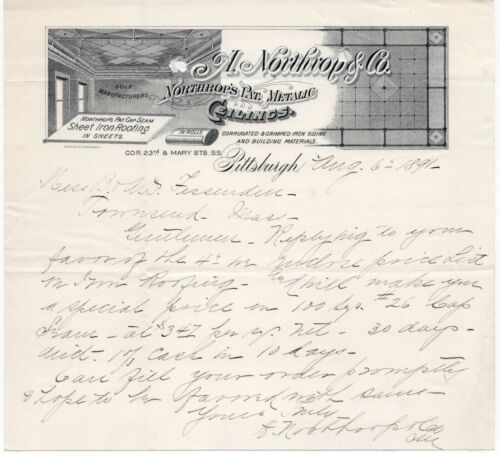 A. Northrop & Co.
SOLE
MANUFACTURERS
NORTHROP'S PAT. METALIC
CEILINGS.
NORTHROP'S PAT. CAP-SEAM
Sheet Iron Roofing
IN SHEETS.
IN ROLLS
CORRUGATED & CRIMPED IRON SIDING
AND BUILDING MATERIALS.
COR. 23rd & MARY STS. S.S.
Pittsburgh Aug. 6th 1891
Mess B. & A.D. Fessenden
Townsend Mass
Gentlemen - Replying to your
favor of the 4th we enclose price List
on Iron Roofing - & will make you
a special price on 100 Sqs. #26 Cap
Seam - at $3.47 per sq. Net - 30 days
disct. 1% Cash in 10 days -
Can fill your order promptly
& hope to be favored with same
Yours Truly
A. Northrop & Co